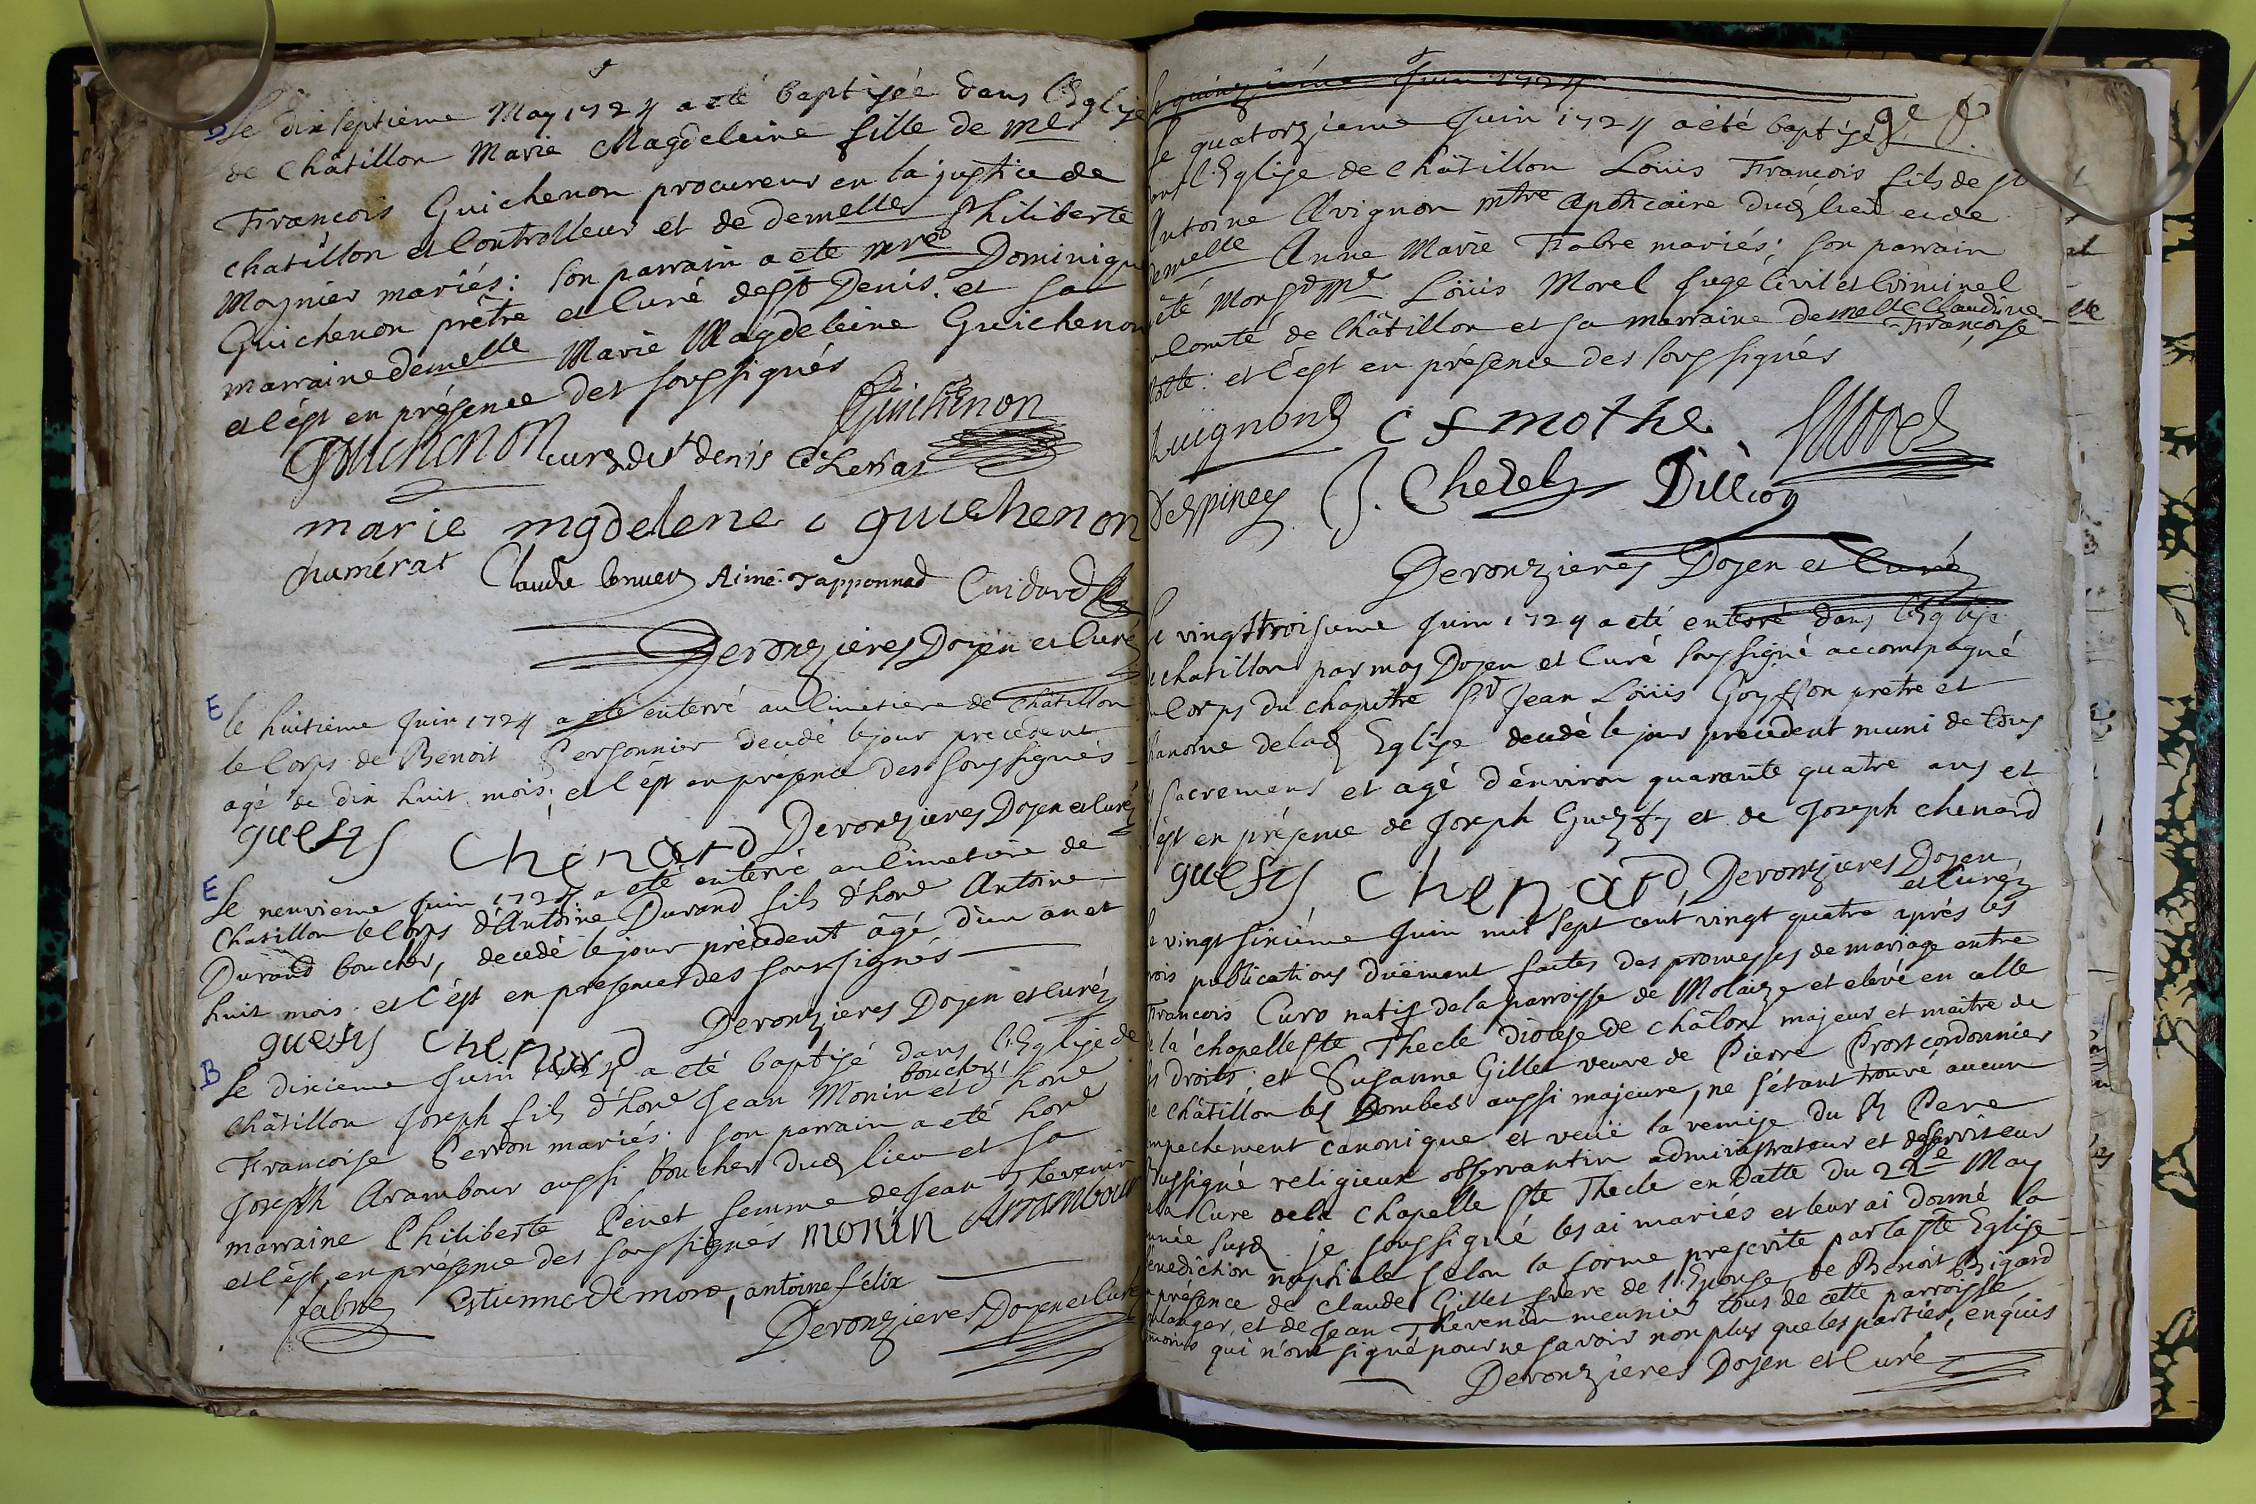 Le dix septieme May 1724 a eté baptisée dans l'Eglise
de Châtillon Marie Magdeleine fille de me
François Guichenon procureur en la justice de
chatillon et Controlleur et de demelle Philiberte
Moynier mariés: son parrain a eté mre Dominique
Guichenon prêtre et Curé de St Denis et sa
marraine demelle Marie Magdeleine Guichenon
et c'est en présence des soussignés
Guichenon
guichenon curé de st denis
marie mgdelene c guichenon
chamérat Claude Aimé rapponnad Cuidard
Deronzieres Doyen et Curé
E
le huitieme Juin 1724 a eté enterré au Cimetiere de Châtillon
le Corps de Benoit Personnier decedé le jour precedent
agé de dix huit mois; et c'est en présence des soussignés
guesty Chenard Deronzieres Doyen et Curé
E
Le neuvieme Juin 1724 a eté enterré au Cimetiere de
Chatillon le Corps d'Antoine Durand fils d'hone Antoine
Durand boucher, decedé le jour précedent âgé d'un an et
huit mois et c'est en presence des soussignés
guesty Chenard Deronzieres Doyen et Curé
B
Le dixieme Juin 1724 a eté baptisé dans l'Eglise de
Châtillon Joseph fils d'hone Jean Monin boucher et d'hone
Francoise Perron mariés. son parrain a eté hone
Joseph Arambour aussi boucher dud lieu et sa
marraine Philiberte Penet femme de Jean Thevenin
et c'est en présence des soussignés monin Arrambour
fabre Estienne Demore, antoine félix
Deronzieres Doyen et Curé
le quinzieme Juin 1724
Le quatorzieme Juin 1724 a eté baptisé
dans l'Eglise de Châtillon Loüis François fils de sr
Antoine Avignon mtre Apoticaire dud lieu et de
demelle Anne Marie Fabre mariés; son parrain
a été Monsr Me Loüis Morel Juge Civil et Criminel
u Comté de Châtillon et sa marraine demelle Claudine
Françoise
et c'est en présence des soussignés
Auignon c f mothe Morel
Despiney J. Chedel Dillion
Deronzieres Doyen et Curé
Le vingt troisieme Juin 1724 a eté enterré dans l'Eglise
de chatillon par moy Doyen et Curé soussigné accompagné
du Corps du chapitre Sr Jean Loüis Goyffon pretre et
chanoine de lad Eglise decedé le jour precedent muni de tous
les sacremens et agé d'environ quarante quatre ans et
c'est en présence de Joseph Guesty et de Joseph chenard
guesty chenard Deronzieres Doyen
et Curé
Le vingt sixiéme Juin mil sept cent vingt quatre aprés les
trois publications düement faites des promesses de mariage entre
François Curo natif de la parroisse de Molaize et elevé en celle
de la chapelle ste Thecle diocèse de châlon majeur et maître de
ses droits; et Susanne Gillet veuve de Pierre Prost cordonnier
de châtillon les Dombes aussi majeure, ne s'étant trouvé aucun
empechement canonique et veüe la remise du R Pere
Bussigné religieux observantin administrateur et desserviteur
de la Cure de la chapelle ste Thecle en datte du 22e May
année susd je soussigné les ai mariés et leur ai donné la
bénediction nuptiale selon la forme prescrite par la ste Eglise
en présence de claude Gillet frere de l'Epouse, de Benoit Bigard
boulanger, et de Jean Thevenin meunier tous de cette parroisse
témoins qui n'ont signé pour ne savoir non plus que les parties, enquis
Deronzieres Doyen et Curé